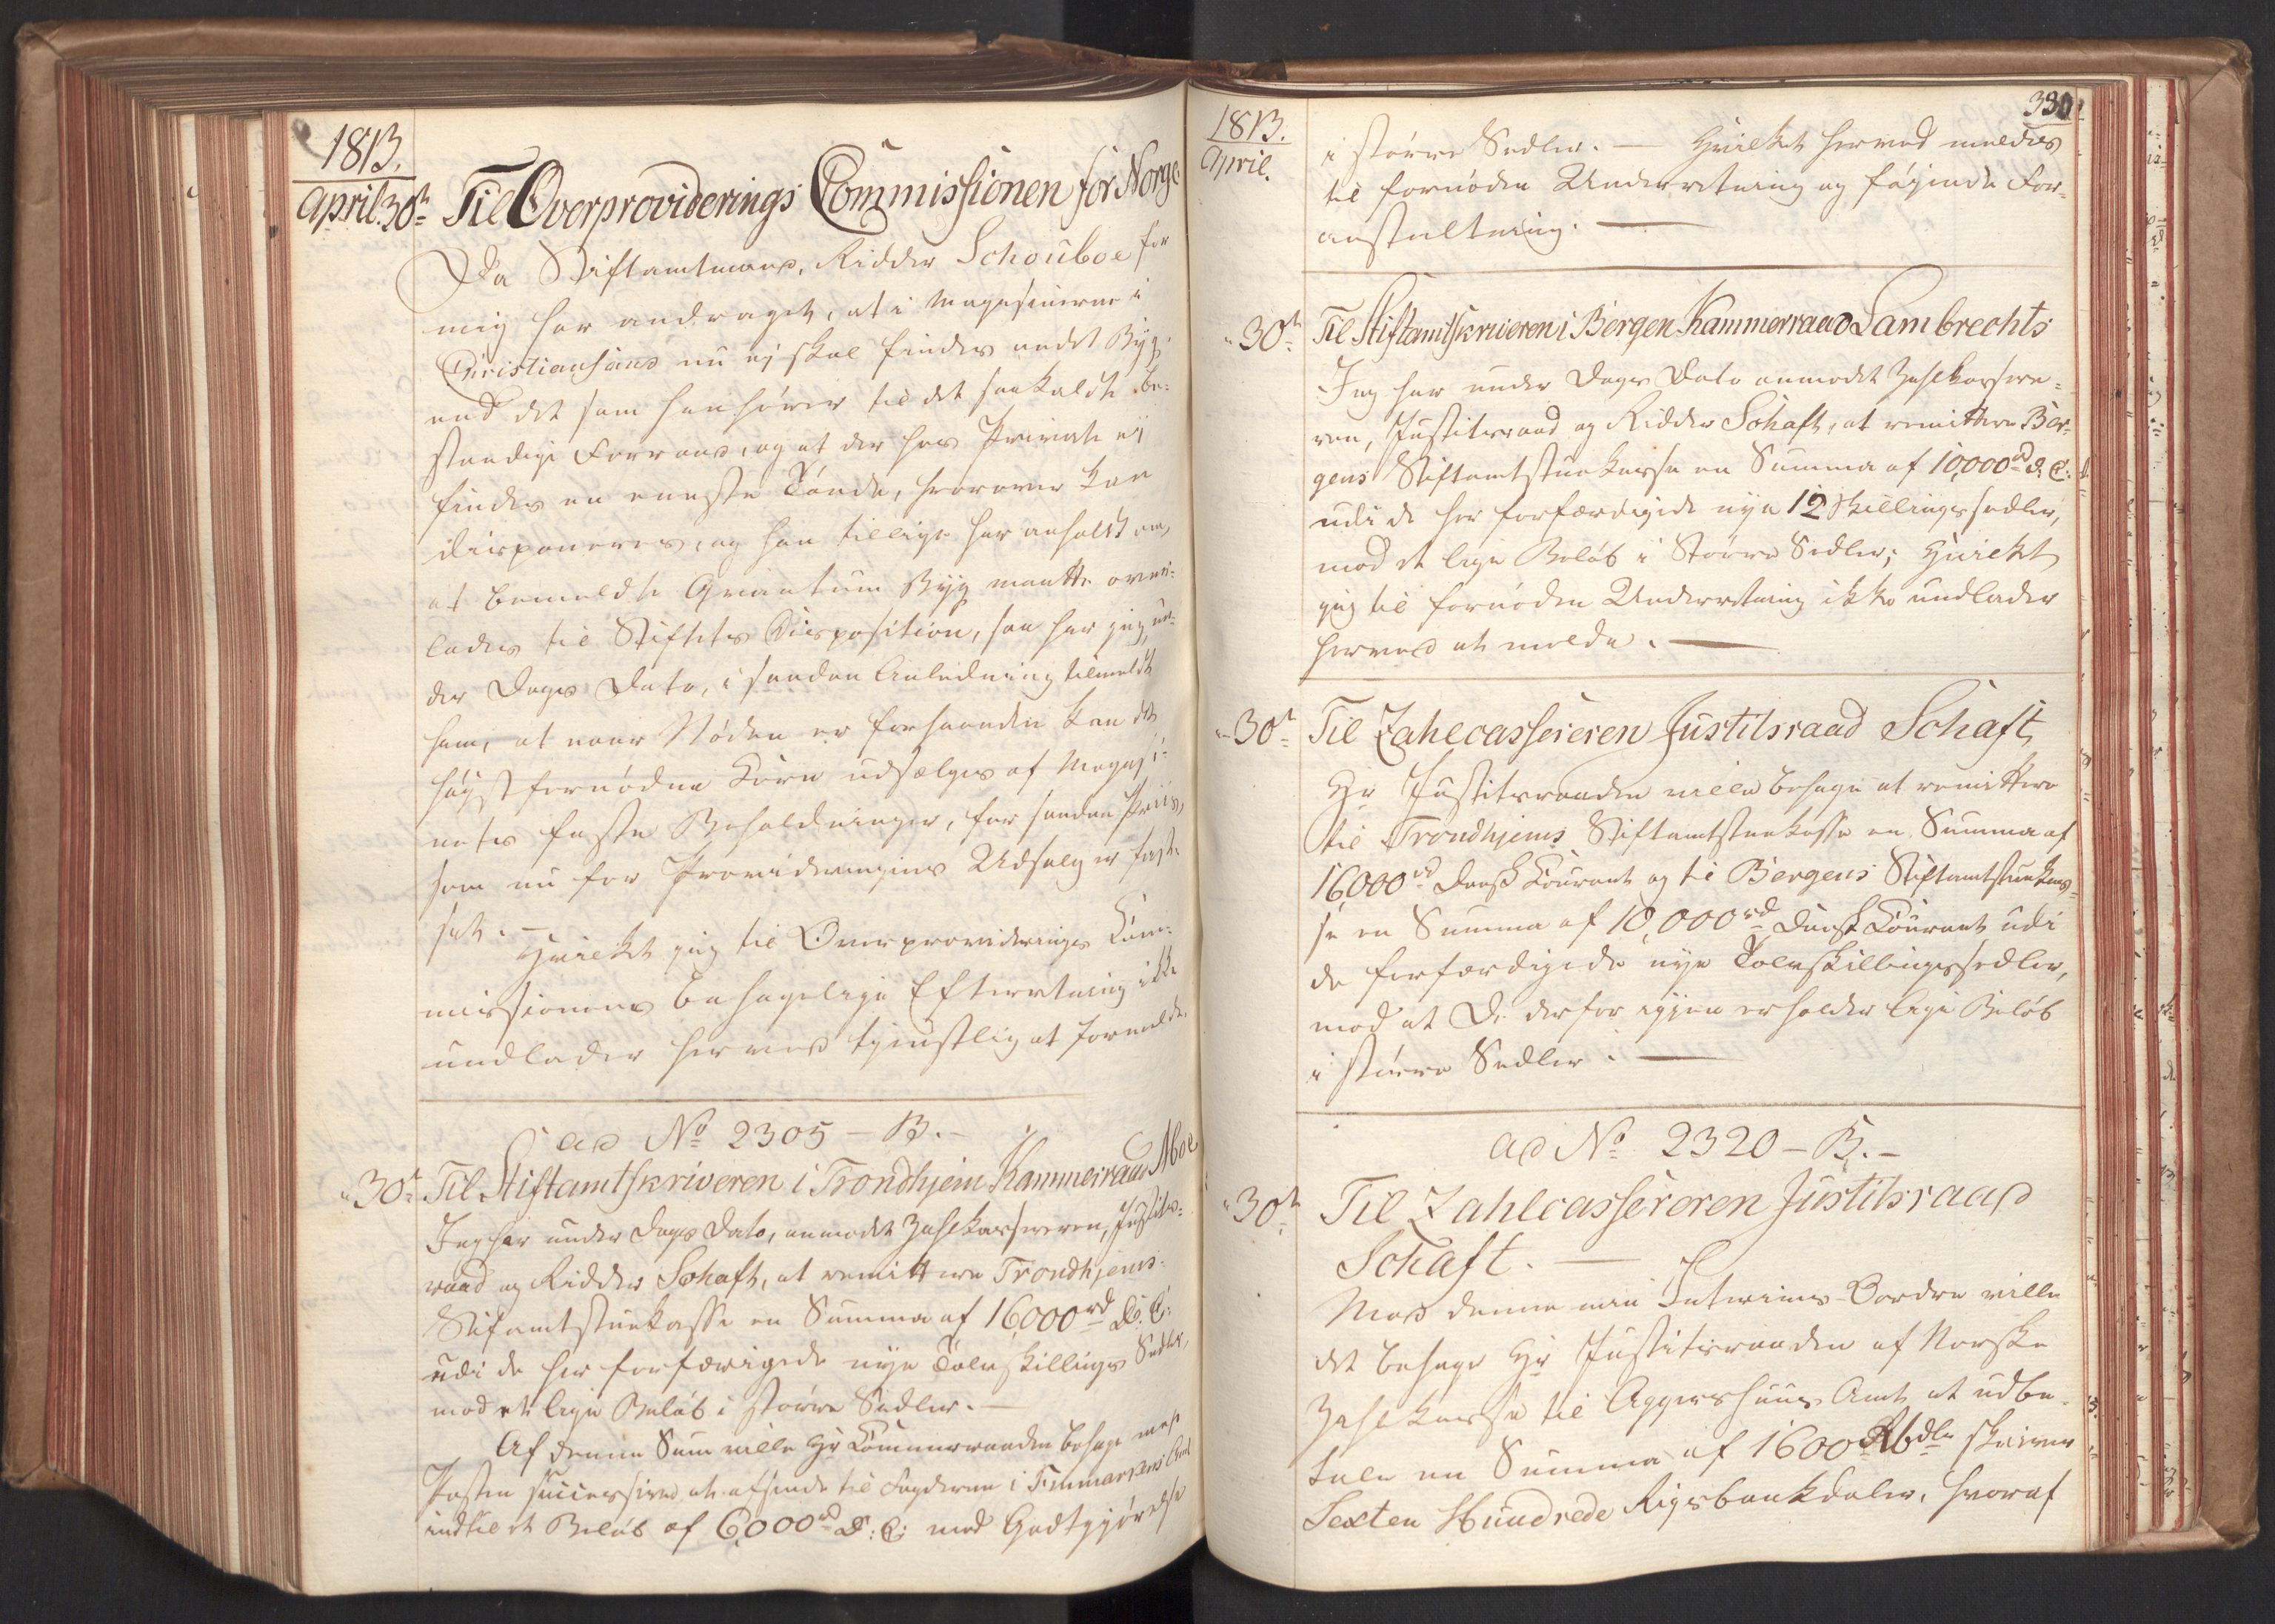 1813.
April 30te Til Overproviderings Commissionen for Norge
Da Stiftamtmand, Ridder Schouboe for
mig har andraget, at i Magasinerne i
Christiansand nu ej skal findes andet Byg,
end det som henhører til det saakaldte be-
standige Forraad, og at der hos Private ej
findes en eneste Tønde, hvorover kan
disponeres, og han tillige har anholdt om,
at bemeldte Qvantum Byg maatte over-
lades til Stiftets Disposition, saa har jeg un-
der Dags Dato, i saadan Anledning tilmeldt
ham, at naar Nøden er forhaanden kan det
høyst fornødne Korn udsælges af Magazi-
nets faste Beholdninger, for saadan Priis,
som nu for Provideringens Udsalg er fast-
sat. —
Hvilket jeg til Overproviderings Com-
missionens behagelige Efterretning ikke
undlader herved tjenstlig at formelde.
ad No 2305 – B. –
" 30te Til Stiftamtskriveren i Trondhjem Kammerraad Moe
Jeg har under Dags Dato, anmodet Zahlkasseren, Justits-
raad og Ridder Schaft, at remittere Trondhjems
Stifamtstuekasse en Summa af 16000rd D. C.
udi de her forfærigede nye Tolvskillings Sedler,
mod et lige Beløb i større Sedler. —
Af denne Sum ville Hr Kammerraaden behage med
Posten successive at afsende til Fogderne i Finmarkens Amt
indtil et Beløb af 6000rd D: C: mod Godtgjørelse
1813.
April.
330
i større Sedler. — Hvilket herved meldes
til fornøden Underretning og føyende For-
anstaltning. —
" 30te Til Stiftamtskriveren i Bergen Kammerraad Lambrechts
Jeg har under Dags Dato anmodet Zahlkassere-
ren, Justitsraad og Ridder Schaft, at remittere Ber-
gens Stiftamtstuekasse en Summa af 10,000rd D. C.
udi de her forfærdigede nye 12 Skillingssedler,
mod et lige Beløb i Større Sedler; Hvilket
jeg til fornøden Underretning ikke undlader
herved at melde. —
" 30te Til Zahlcassereren Justitsraad Schaft
Hr Justitsraaden ville behage at remittere
til Trondhjems Stiftamtstuekasse en Summa af
16000rd Dansk Courant og til Bergens Stiftamtstuekas-
se en Summa af 10,000rd Dansk Courant udi
de forfærdigede nye Tolvskillingssedler,
mod at De derfor igjen erholder lige Beløb
i større Sedler. —
ad No 2320 – B. –
" 30te Til Zahlcassereren Justitsraad
Schaft. —
Mod denne min Interims-Ordre ville
det behage Hr Justitsraaden af Norske
Zahlkasse til Aggershuus Amt at udbe-
tale en Summa af 1600 Rbdlr skriver
Sexten Hundrede Rigsbankdaler, hvoraf